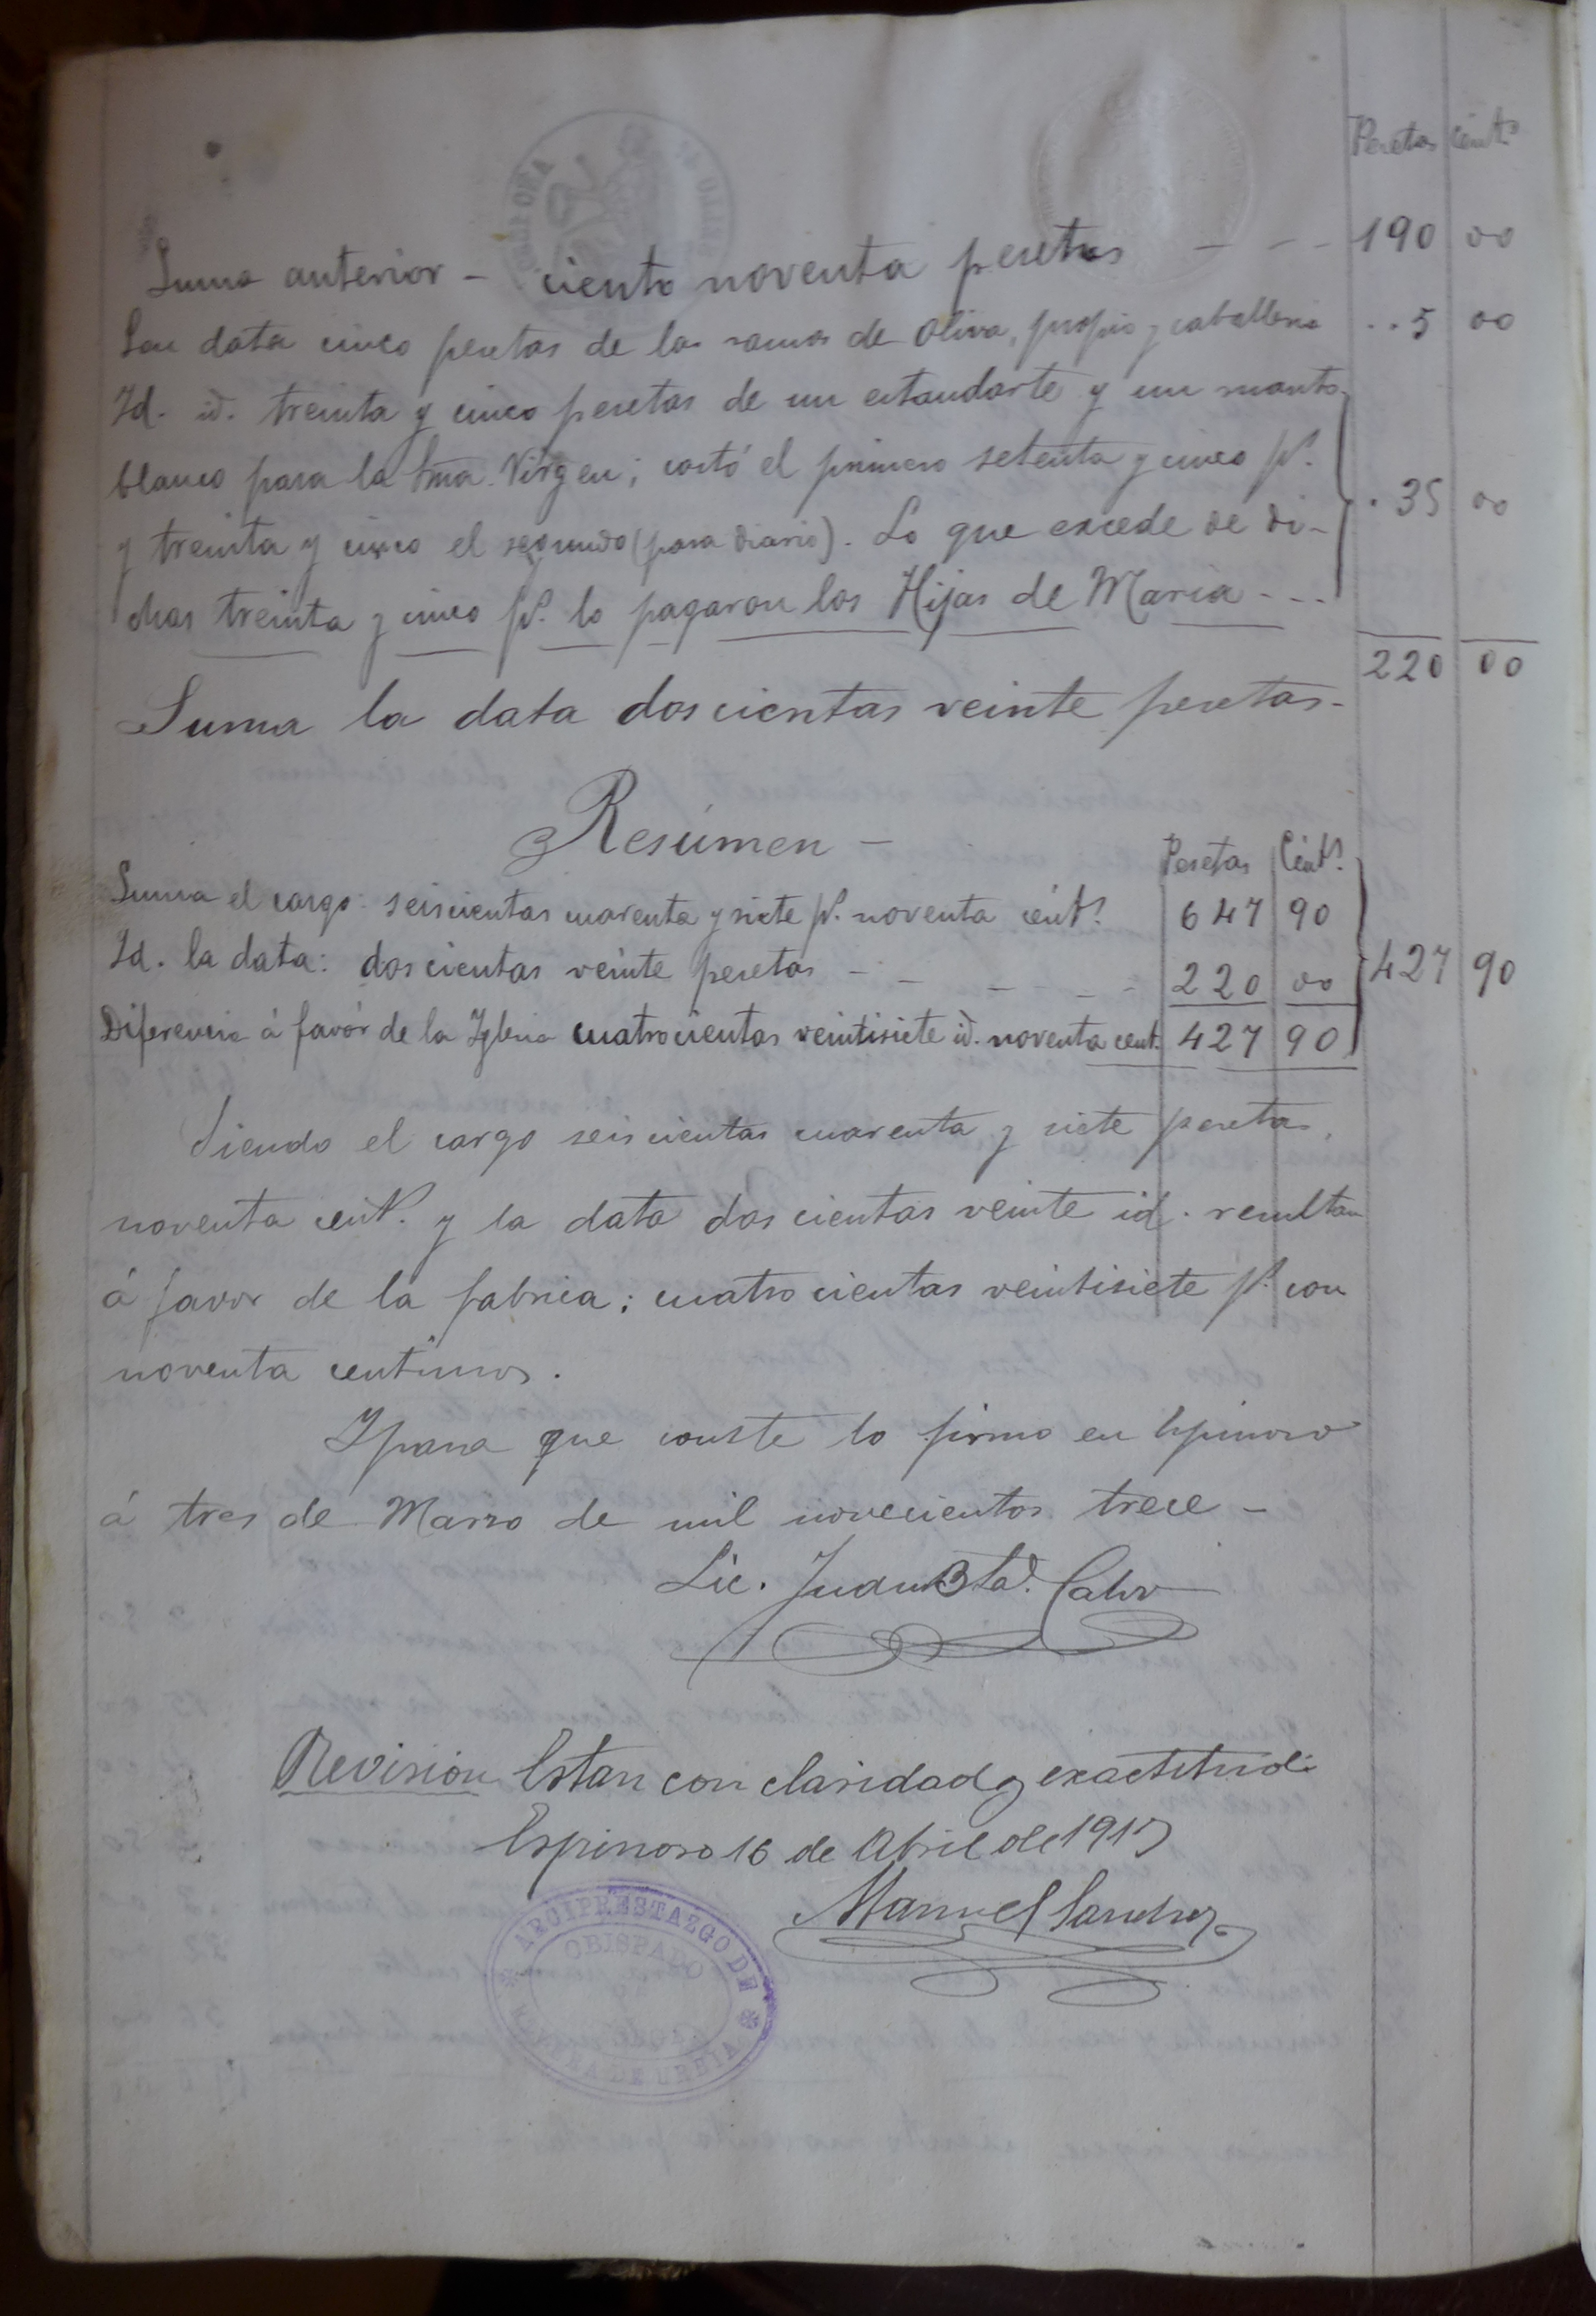 Pesetas Cént.s
Suma anterior - ciento noventa pesetas - - - 190 00
Son data cinco pesetas de los ramos de oliva, propio y caballeria . . 5 00
Id. id. treinta y cinco pesetas de un estandarte y un manto
blanco para la Sma. Virgen; costó el primero setenta y cinco pts.
y treinta y cinco el segundo (para diario). Lo que excede de di- . 35 00
chas treinta y cinco pts. lo pagaron las Hijas de Maria - - -
220 00
Suma la data doscientas veinte pesetas -
Resúmen -
Pesetas Cént.s
Suma el cargo: seiscientas cuarenta y siete pts. noventa cént.s 647 90
Id. la data: doscientas veinte pesetas - - - - - 220 00 427 90
Diferencia á favór de la Iglesia cuatrocientas veintisiete id. noventa cent. 427 90
Siendo el cargo seiscientas cuarenta y siete pesetas,
noventa cent.s y la data doscientas veinte id. resultan
á favor de la fabrica; cuatrocientas veintisiete pts. con
noventa centimos.
Y para que conste lo firmo en Espinoso
á tres de Marzo de mil novecientos trece -
Lic. Juan Bta. Calvo
Revision Estan con claridad y exactitud:
Espinoso 16 de Abril de 1917
Manuel Sanchez
ARCIPRESTAZGO DE
OBISPADO
DE